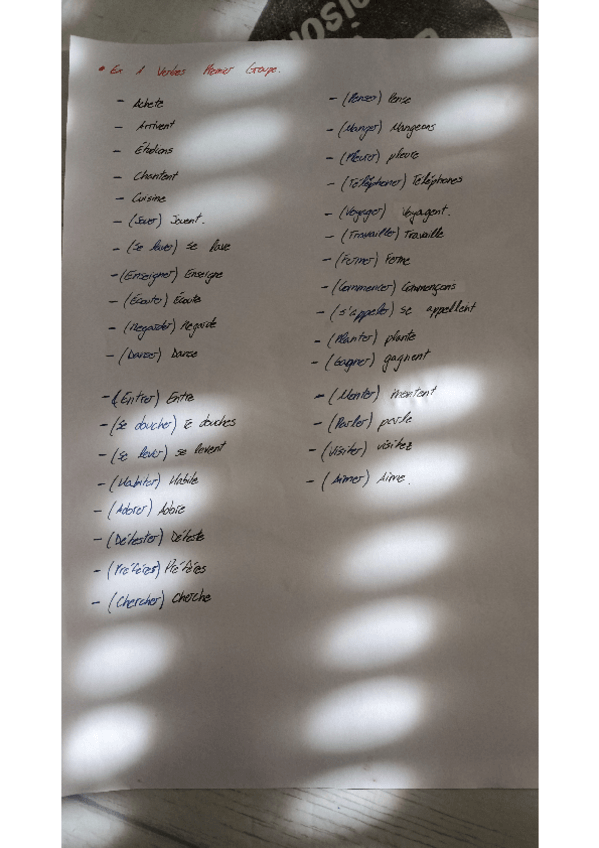 • Ex 1 Verbes Premier Groupe.
- Achete
- Arrivent
- Étudions
- Chantent
- Cuisine
- (Jouer) Jouent.
- (Se laver) se lave
- (Enseigner) Enseigne
- (Écouter) Écoute
- (Regarder) Regarde
- (Danser) Danse
- (Entrer) Entre
- (Se doucher) te douches
- (Se lever) se levent
- (Habiter) Habite
- (Adorer) Adore
- (Détester) Déteste
- (Préférer) Préféres
- (Chercher) Cherche
- (Penser) Pense
- (Manger) Mangeons
- (Pleurer) pleure
- (Téléphoner) Téléphones
- (Voyager) Voyagent.
- (Travailler) Travaille
- (Fermer) Ferme
- (Commencer) Commençons
- (s'appeler) se appellent
- (Planter) plante
- (Gagner) gagnent
- (Monter) montent
- (Parler) parle
- (Visiter) visitez
- (Aimer) Aime.